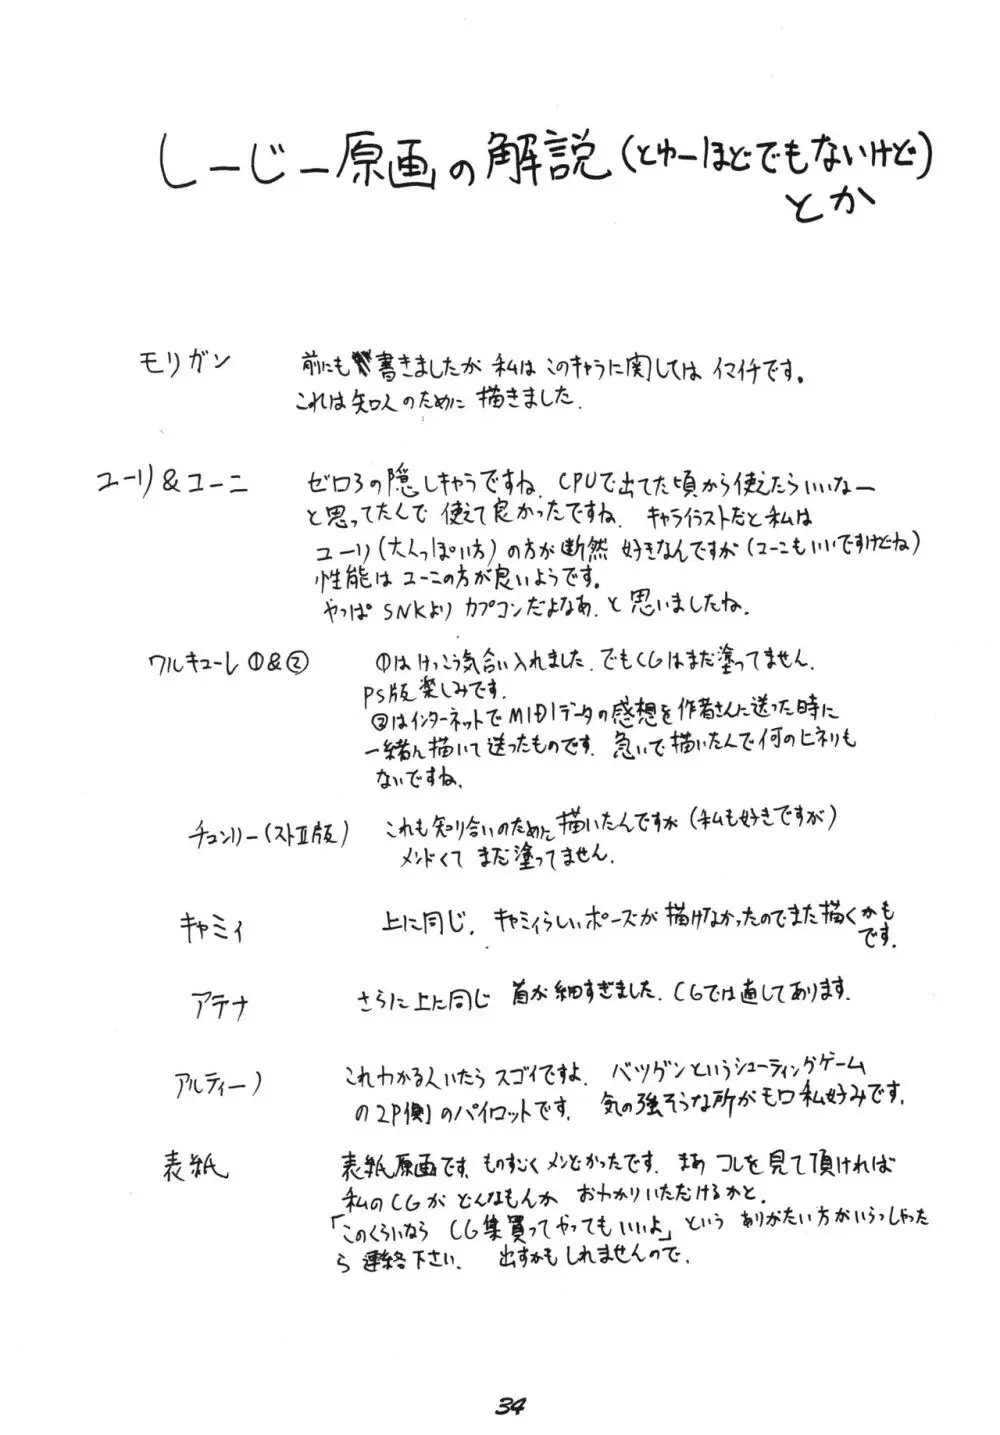 しーじー原画の解説(とゆーほどでもないけど)
とか
モリガン 前にも書きましたが 私は このキャラに関しては イマイチです。
これは知人のために 描きました.
ユーリ&ユーニ ゼロ3の隠しキャラですね. CPUで出てた頃から使えたらいいなー
と思ってたんで 使えて良かったですね. キャライラストだと私は
ユーリ(大人っぽい方)の方が断然 好きなんですが(ユーニもいいですけどね)
性能はユーニの方が良いようです。
やっぱSNKより カプコンだよなあ. と 思いましたね.
ワルキューレ①&② ①はけっこう気合い入れました. でもCGはまだ塗ってません.
PS版楽しみです.
②はインターネットでMIDIデータの感想を作者さんに送った時に
一緒に描いて送ったものです. 急いで描いたんで何のヒネリも
ないですね.
チュンリー(ストⅡ版) これも知り合いのために描いたんですが(私も好きですが)
メンドくて まだ塗ってません.
キャミィ 上に同じ. キャミィらしいポーズが描けなかったのでまた描くかも
です.
アテナ さらに上に同じ 首が細すぎました. CGでは直してあります.
アルティーノ これわかる人いたら スゴイですよ. バツグンというシューティングゲーム
の2P側のパイロットです. 気の強そうな所がモロ私好みです.
表紙 表紙原画です. ものすごくメンどかったです. まあ コレを見て頂ければ
私のCGが どんなもんか おわかりいただけるかと.
「このくらいなら CG集買ってやってもいいよ」という ありがたい方がいらっしゃった
ら 連絡下さい. 出すかもしれませんので.
34